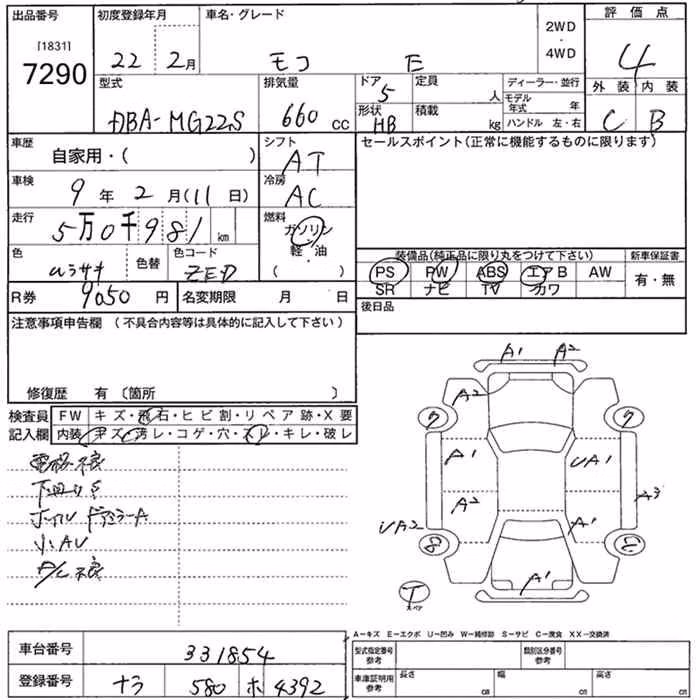 出品番号
[1831]
7290
初度登録年月
22年 2月
車名・グレード
モコ E
2WD
・
4WD
評価点
4
外装 内装
C B
型式
DBA-MG22S
排気量
660 cc
ドア
5
形状
HB
定員
人
積載
kg
ディーラー・並行
モデル年式 年
ハンドル 左・右
車歴
自家用・( )
シフト
AT
セールスポイント(正常に機能するものに限ります)
車検
9年 2月(11日)
冷房
AC
走行
5万0千981km
燃料
ガソリン
軽・油
( )
色
ムラサキ
色替
色コード
ZED
装備品(純正品に限り丸をつけて下さい)
PS PW ABS エアB AW
SR ナビ TV カワ
新車保証書
有・無
R券 9050円
名変期限 月 日
後日品
注意事項申告欄(不具合内容等は具体的に記入して下さい)
修復歴 有〔箇所 〕
検査員
記入欄
FW キズ・飛石・ヒビ割・リペア跡・X要
内装 キズ・汚レ・コゲ・穴・スレ・キレ・破レ
電格不良
下回りS
ホイル ドアミラーA
小AU
P/L不良
A1 A2
A2
ワ ワ
A1 UA1
A2 A3
UA2 A1
A1
T
スペア
A-キズ E-エクボ U-凹み W-補修跡 S-サビ C-腐食 XX-交換済
車台番号 331854
登録番号 ナラ 580 ホ 4392
型式指定番号
参考
類別区分番号
参考
車庫証明用
参考
長さ cm 幅 cm 高さ cm